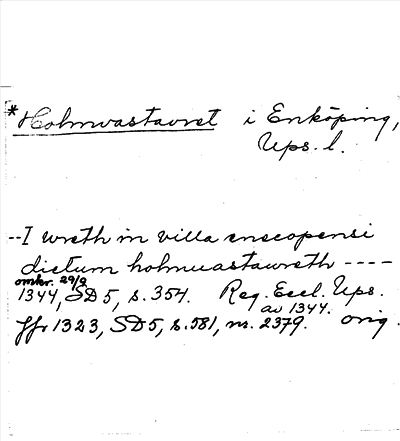 *Holmvastavret i Enköping,
Ups. l.
--I wreth in villa enecopensi
dictum holmuastawreth ----
omkr. 29/9
1344, SD 5, s. 354. Reg. Eccl. Ups.
av 1344.
jfr 1323, SD 5, s. 581, nr. 2379. orig.